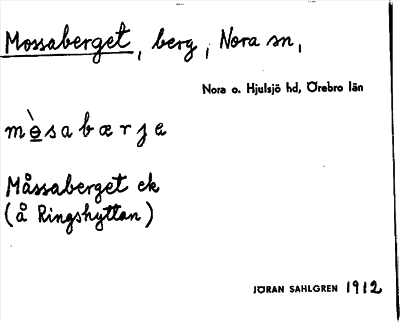 Mossaberget, berg, Nora sn,
Nora o. Hjulsjö hd, Örebro län
mòsabærje
Måssaberget ek
(å Ringshyttan)
JÖRAN SAHLGREN 1912